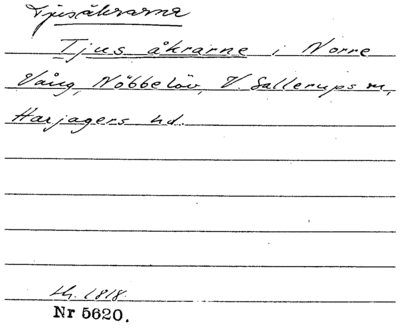 Tjusåkrarna
Tjus åkrarne i Norre
Vång, Nöbbelöv, V. Sallerups sn,
Harjagers hd.
Lh. 1818
Nr 5620.